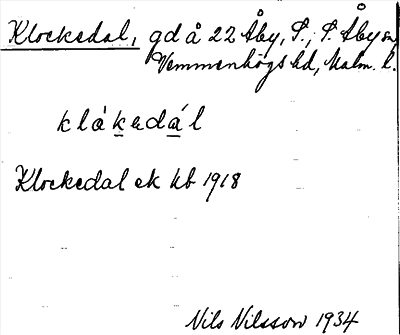 Klockedal, gd å 22 Åby, S., S. Åby sn,
Vemmenhögs hd, Malm. l.
klåkedál
Klockedal ek kb 1918
Nils Nilsson 1934